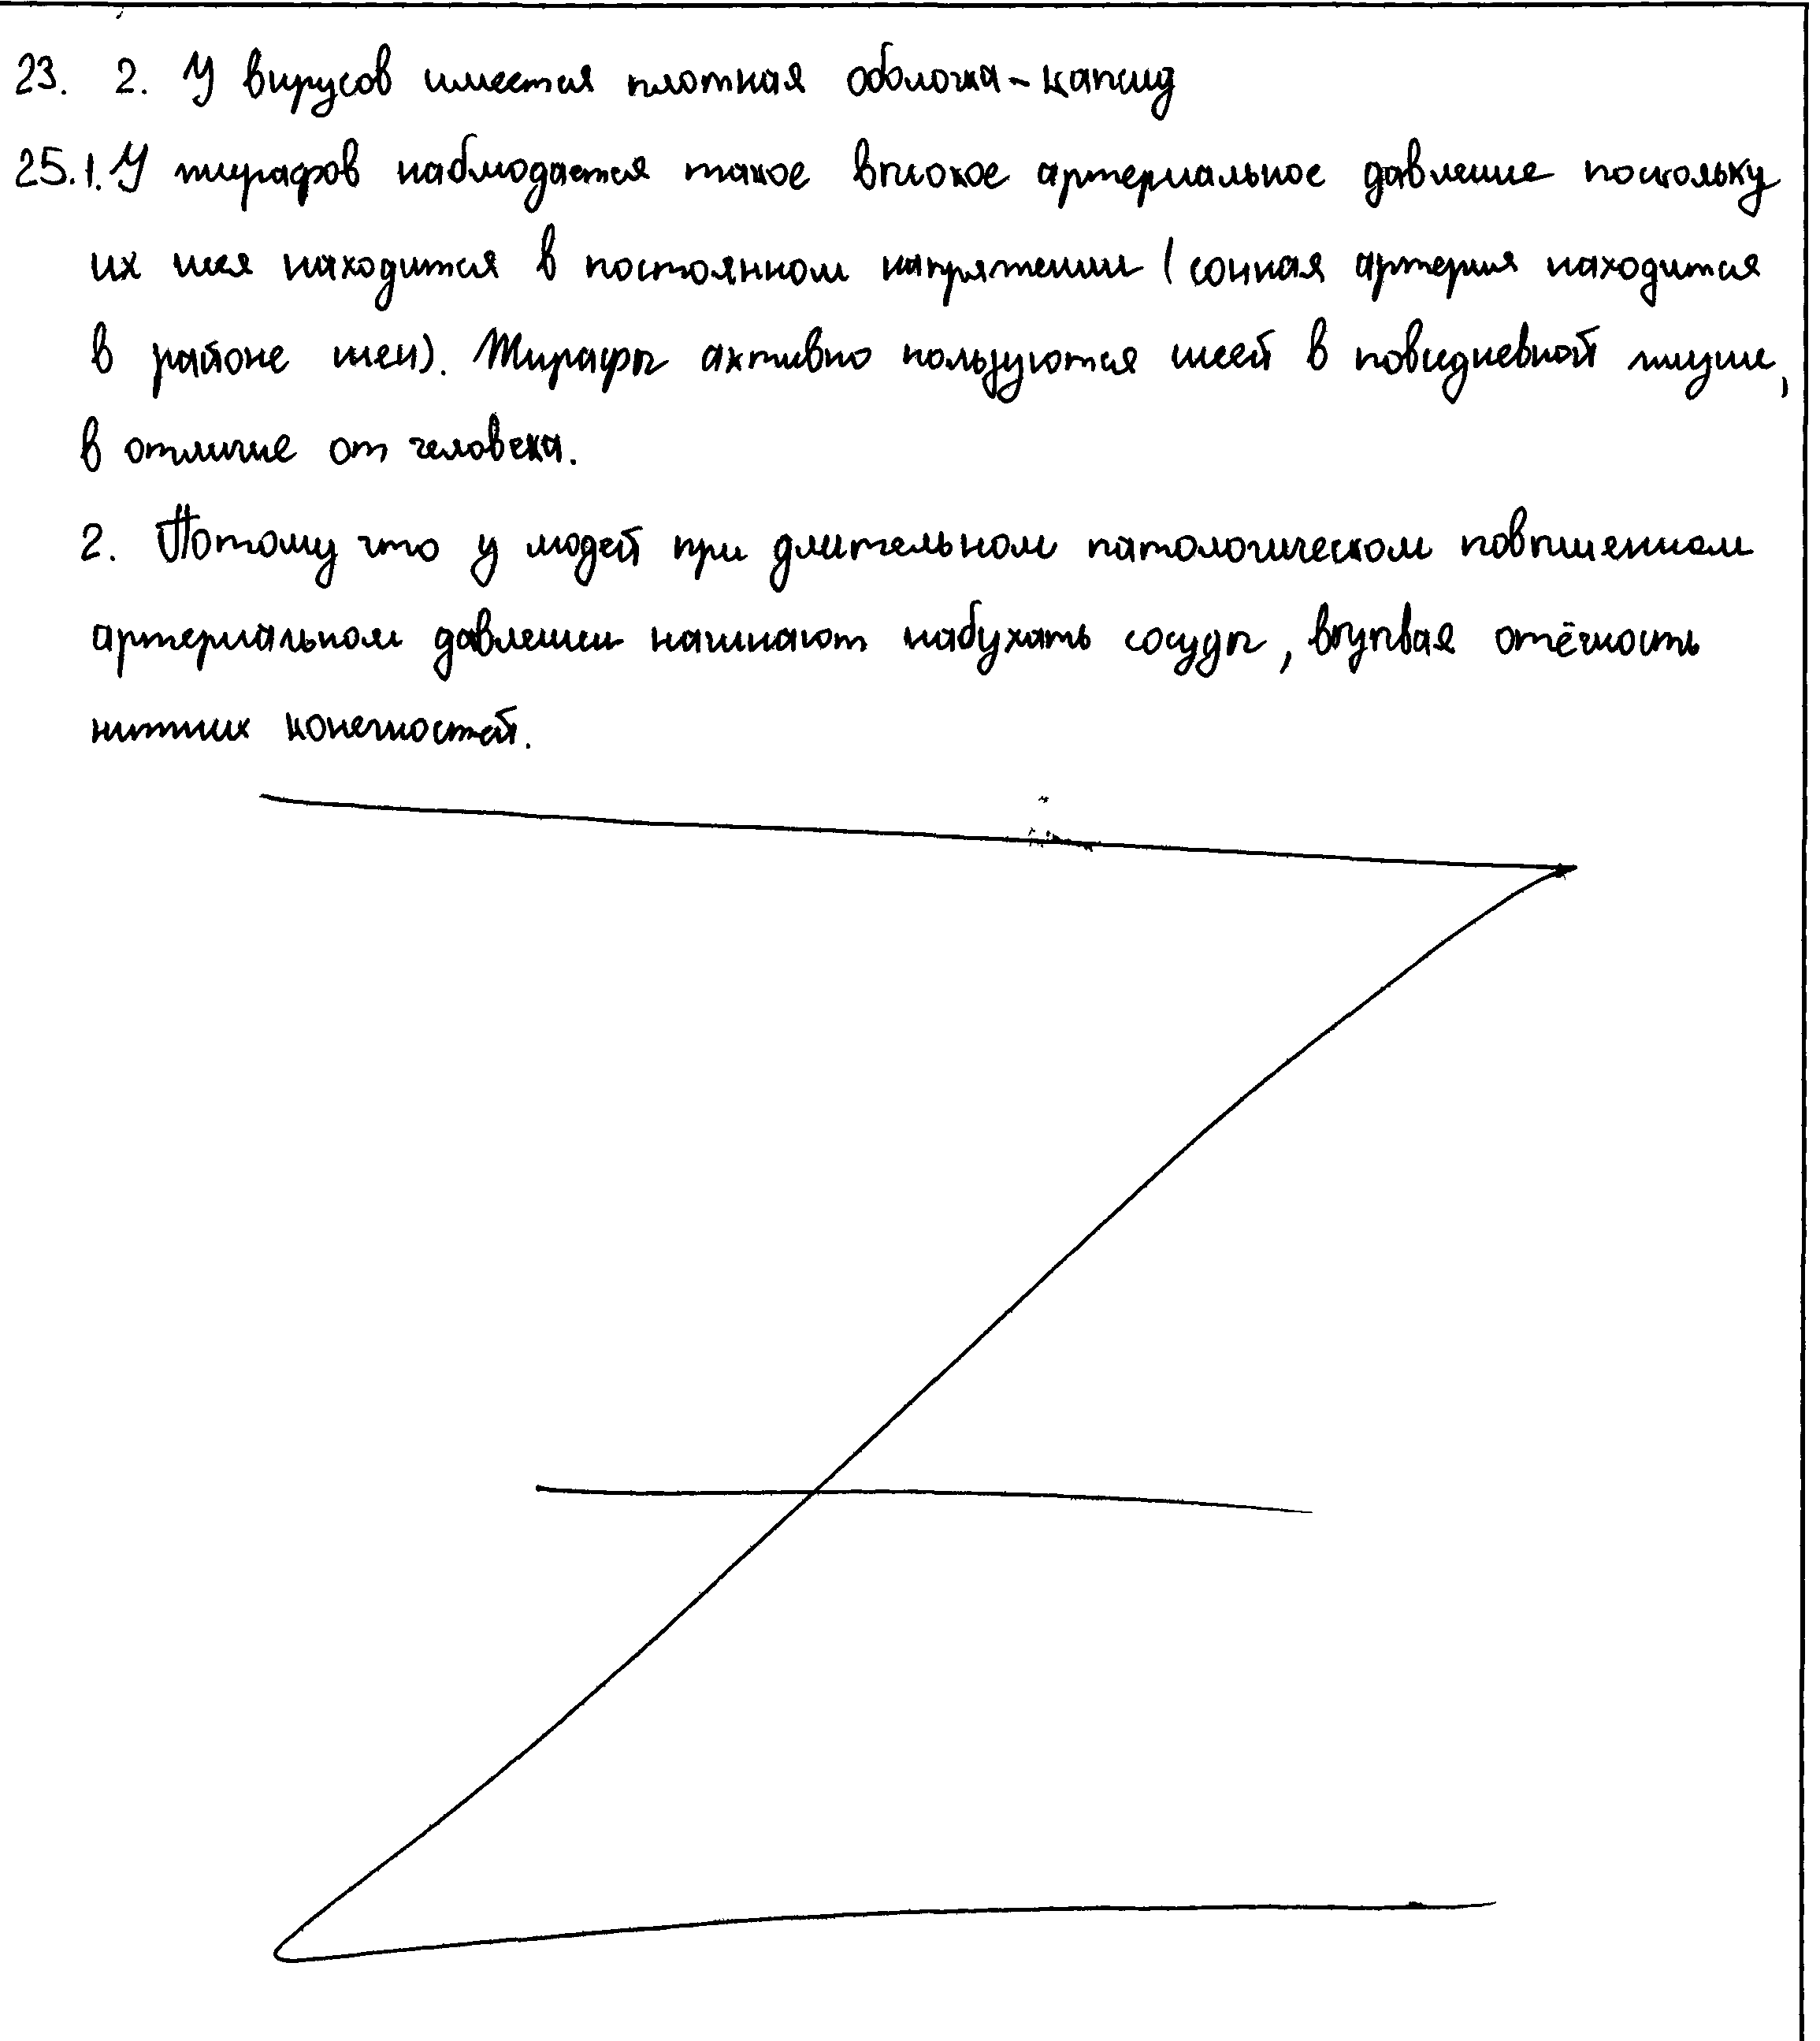 23. 2. У вирусов имеется плотная оболочка - капсид
25.1. У жирафов наблюдается такое высокое артериальное давление поскольку
их шея находится в постоянном напряжении (сонная артерия находится
в районе шеи). Жирафы активно пользуются шеей в повседневной жизни,
в отличие от человека.
2. Потому что у людей при длительном патологическом повышенном
артериальном давлении начинают набухать сосуды, вызывая отёчность
нижних конечностей.